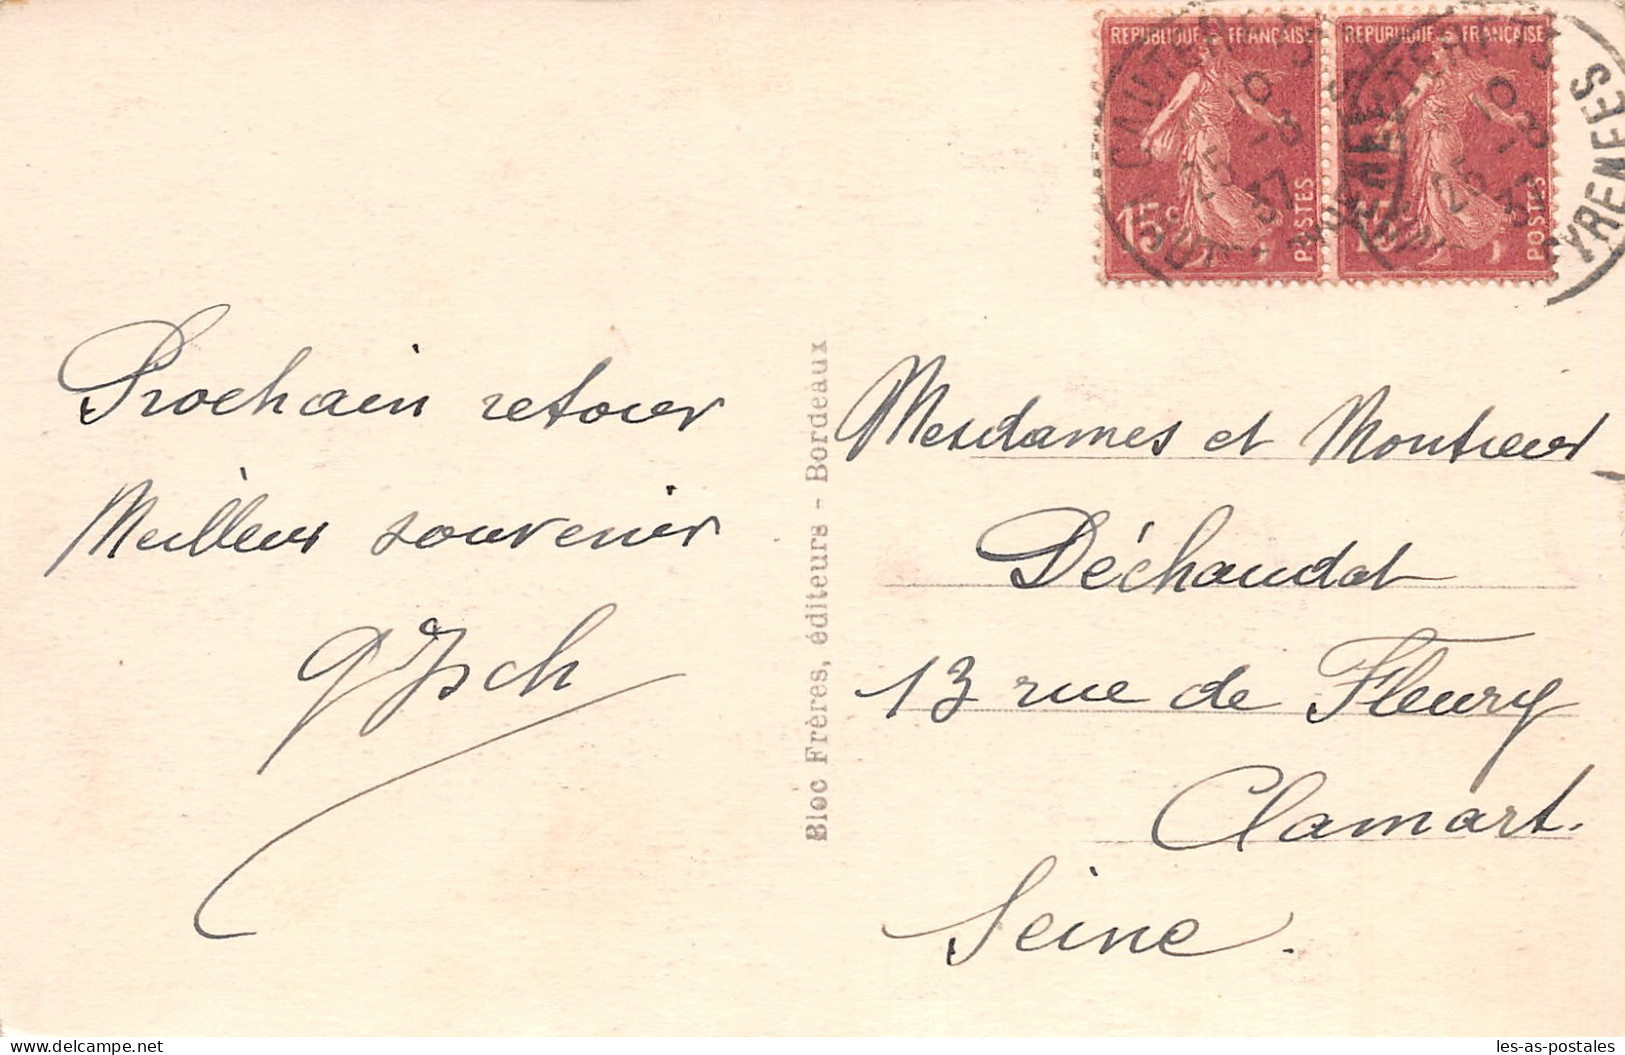 REPUBLIQUE FRANÇAISE
15c POSTES
REPUBLIQUE FRANÇAISE
POSTES
CAUTERETS
25 -8 37
PYRENEES
Prochain retour
Meilleur souvenir
Bloc Frères, éditeurs - Bordeaux
Mesdames et Monsieur
Déchaudat
13 rue de Fleury
Clamart.
Seine.
delcampe.net
les-as-postales